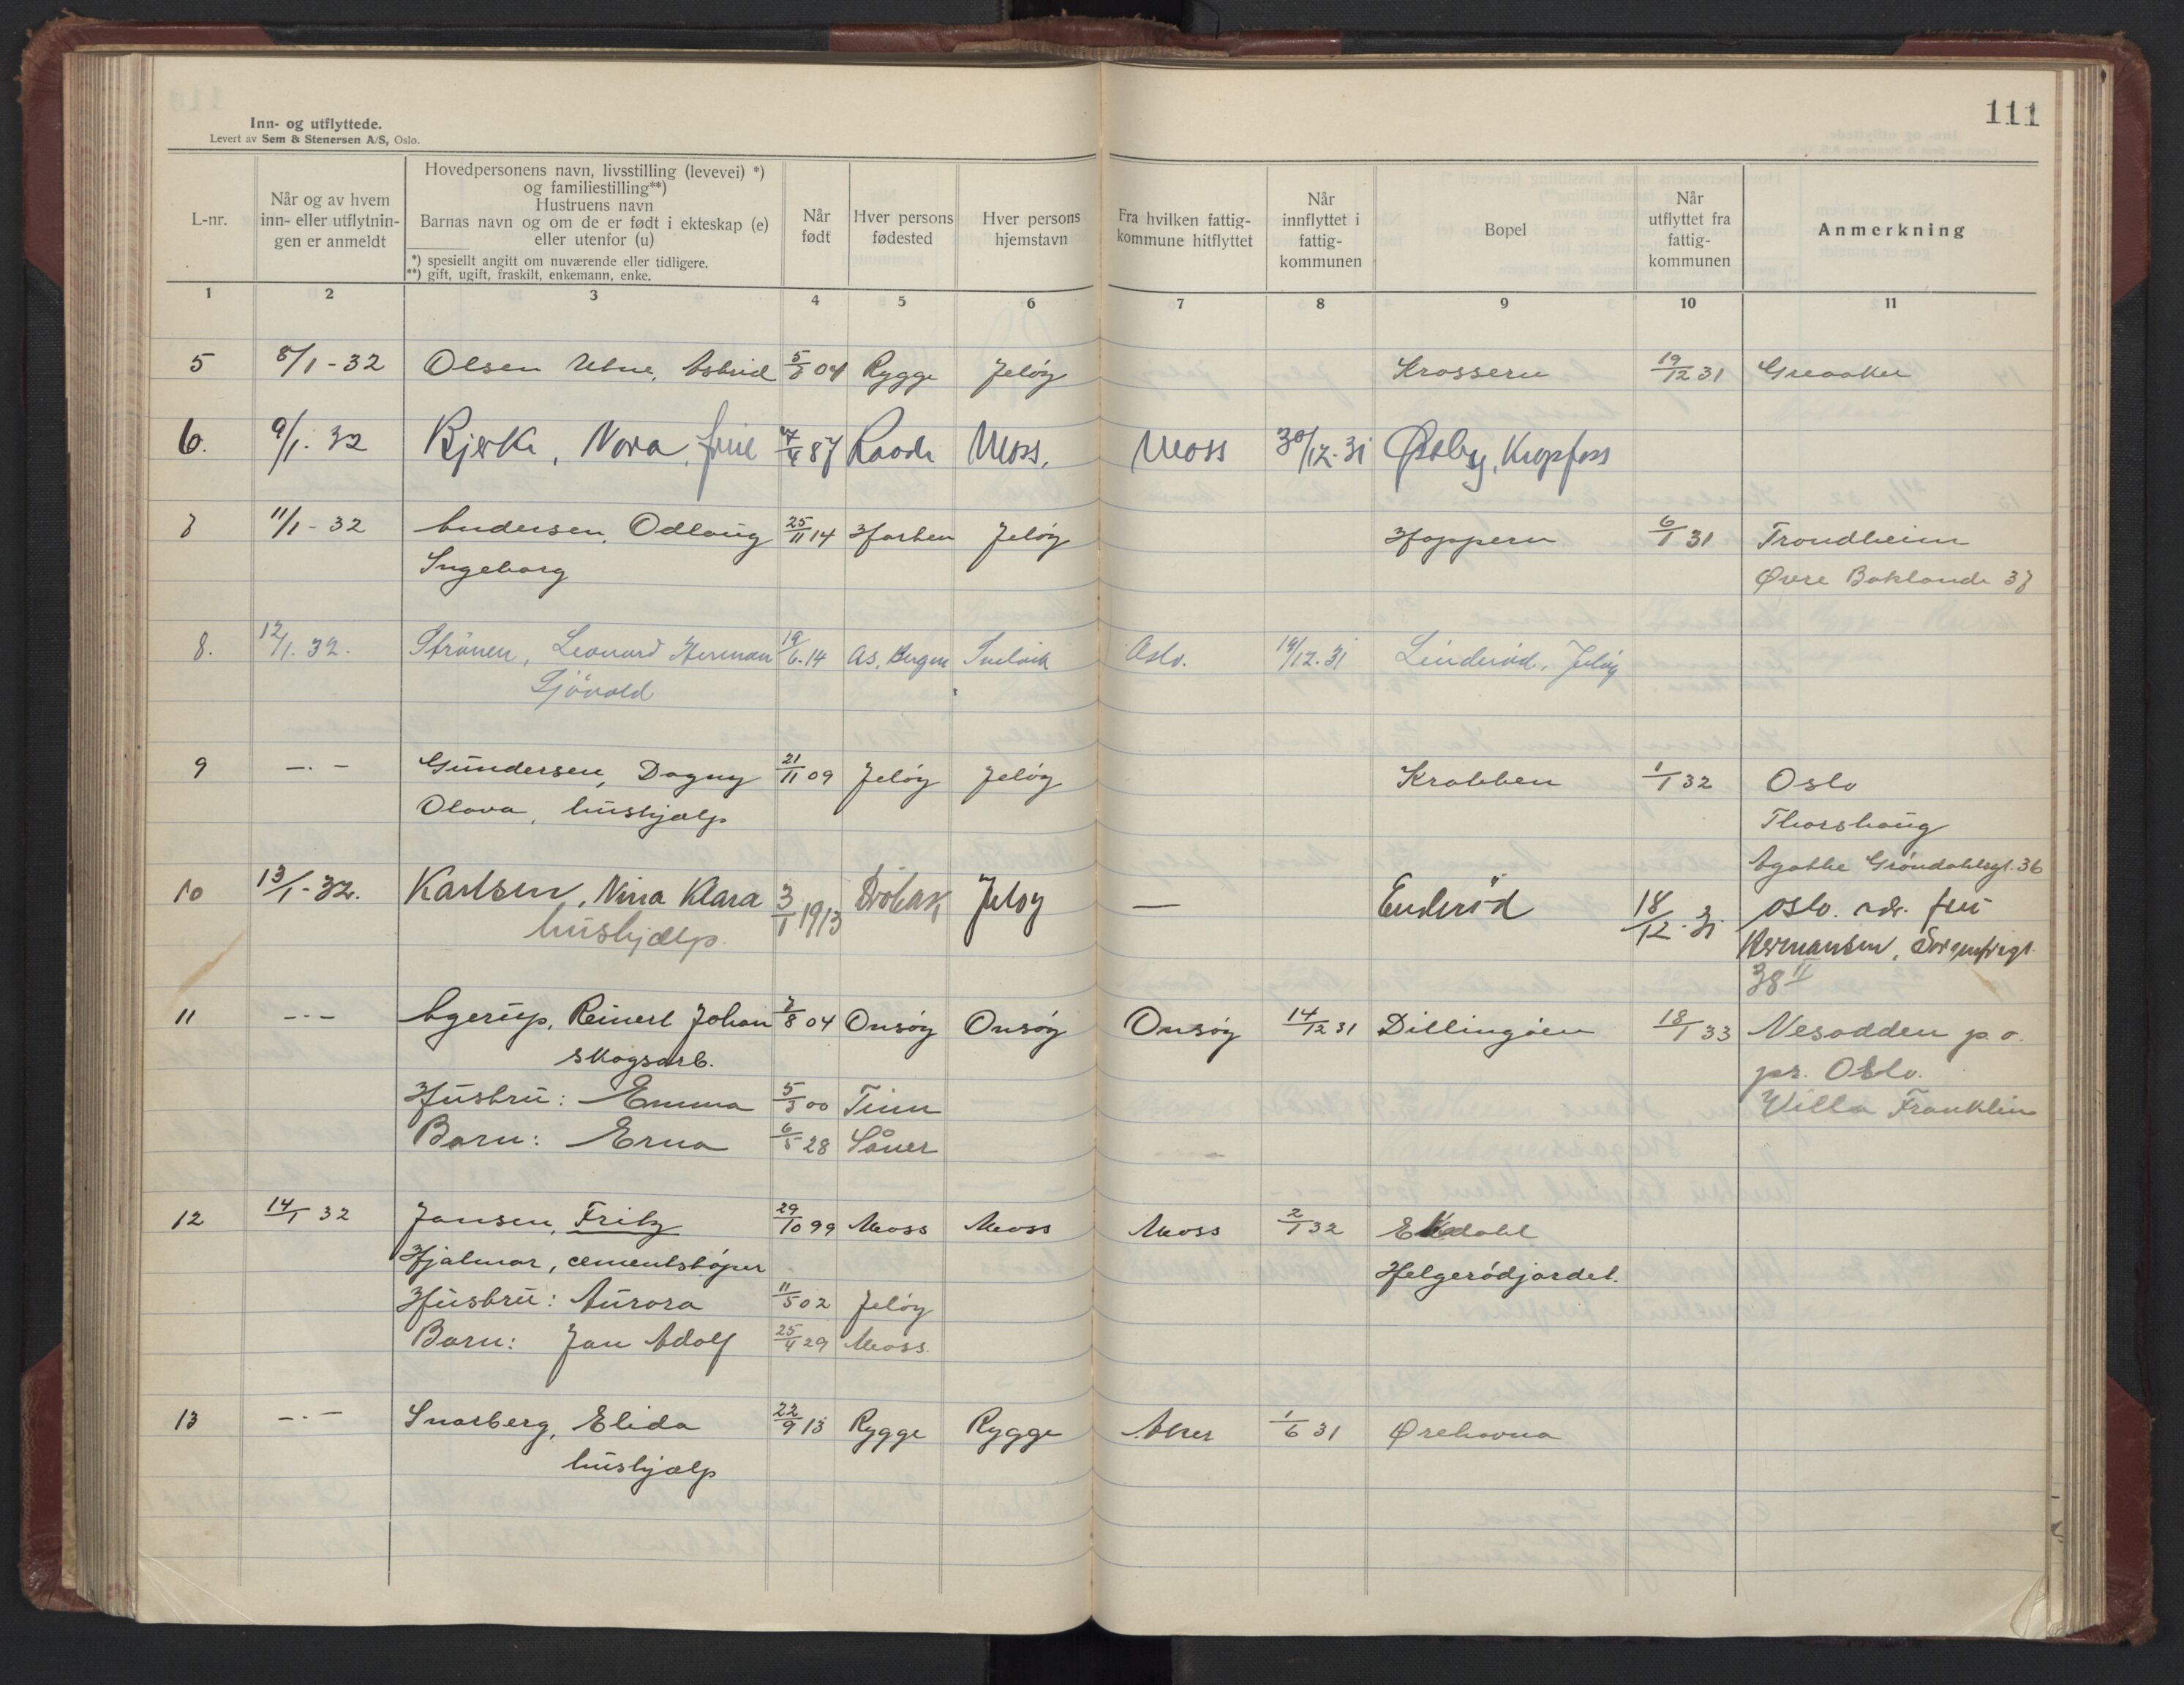 111
Inn- og utflyttede.
Levert av Sem & Stenersen A/S, Oslo.
L-nr.
Når og av hvem
inn- eller utflytnin-
gen er anmeldt
Hovedpersonens navn, livsstilling (levevei) *)
og familiestilling**)
Hustruens navn
Barnas navn og om de er født i ekteskap (e)
eller utenfor (u)
*) spesiellt angitt om nuværende eller tidligere.
**) gift, ugift, fraskilt, enkemann, enke.
Når
født
Hver persons
fødested
Hver persons
hjemstavn
Fra hvilken fattig-
kommune hitflyttet
Når
innflyttet i
fattig-
kommunen
Bopel
Når
utflyttet fra
fattig-
kommunen
Anmerkning
1 2 3 4 5 6 7 8 9 10 11
5 8/1-32 Olsen Utne, Astrid 5/8 04 Rygge Jeløy Krossern 19/12 31 Greaaker
6. 9/1. 32 Bjerke, Nora, frue 4/4 87 Raade Moss. Moss 30/12-31 Østby, Kropfoss
7 11/1-32 Andersen, Odlaug 25/11 14 Horten Jeløy Hoppern 6/1 31 Trondheim
Ingeborg Øvre Baklande 37
8. 12/1. 32. Strönen, Leonard Herman 19/6-14 As, Bergen Svelvik Oslo. 14/12-31 Linderød, Jeløy
Sjövold
9 -.- Gundersen, Dagny 21/11 09 Jeløy Jeløy Krabben 1/1 32 Oslo
Olava, hushjælp Thorshaug
Agathe Grøndahlsgt. 36
10 13/1-32. Karlsen, Nina Klara 3/1 1913 Dröbak Jeløy — Enderöd 18/12-31 Oslo. adr. fru
hushjælp. Hermansen, Sorgenfrigt.
38 II
11 -.- Agerup, Reinert Johan 7/8 04 Onsøy Onsøy Onsøy 14/12 31 Dillingøen 18/1 33 Nesodden p.o.
skogsarb. pr. Oslo.
Hustru: Emma 5/3 00 Tinn Villa Franklin
Barn: Erna 6/5 28 Såner
12 14/1 32 Jansen, Fritz 29/10 99 Moss Moss Moss 2/1 32 Ekdahl
Hjalmar, cementstøper Helgerødjordet.
Hustru: Aurora 11/5 02 Jeløy
Barn: Jan Adolf 25/4 29 Moss.
13 -.- Snarberg, Elida 22/9 13 Rygge Rygge Aker 1/6 31 Ørehavna
hushjælp